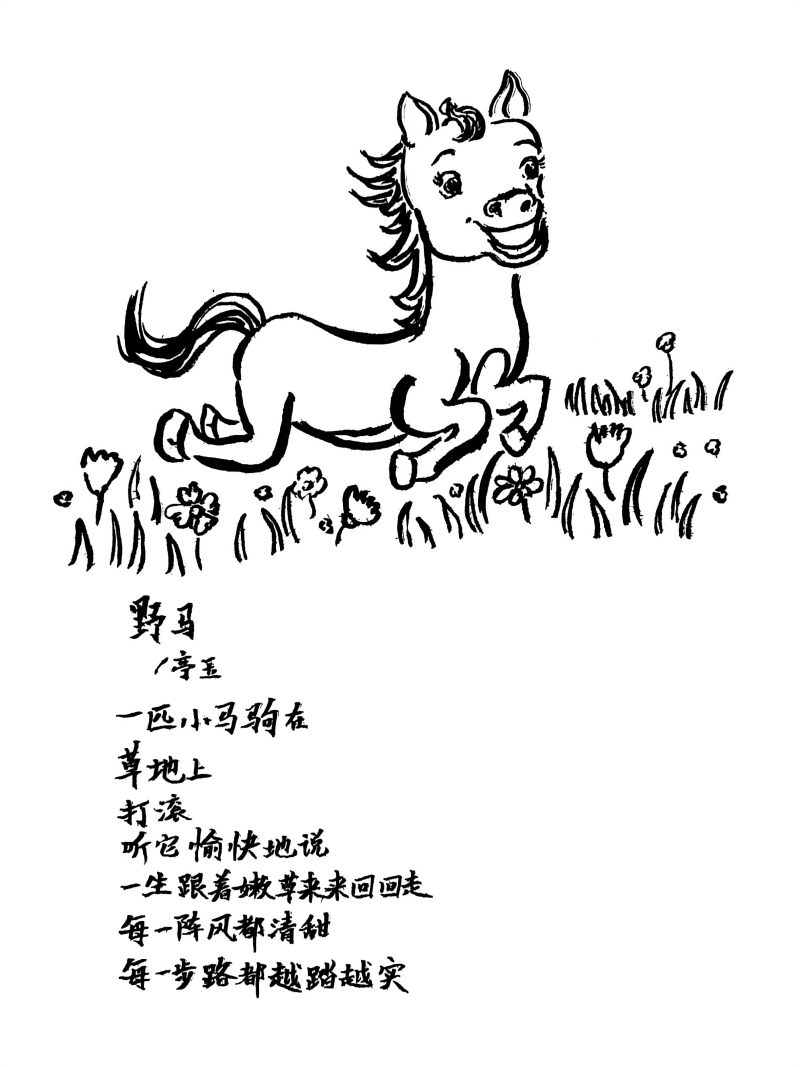 野马
/亭玉
一匹小马驹在
草地上
打滚
听它愉快地说
一生跟着嫩草来来回回走
每一阵风都清甜
每一步路都越踏越实